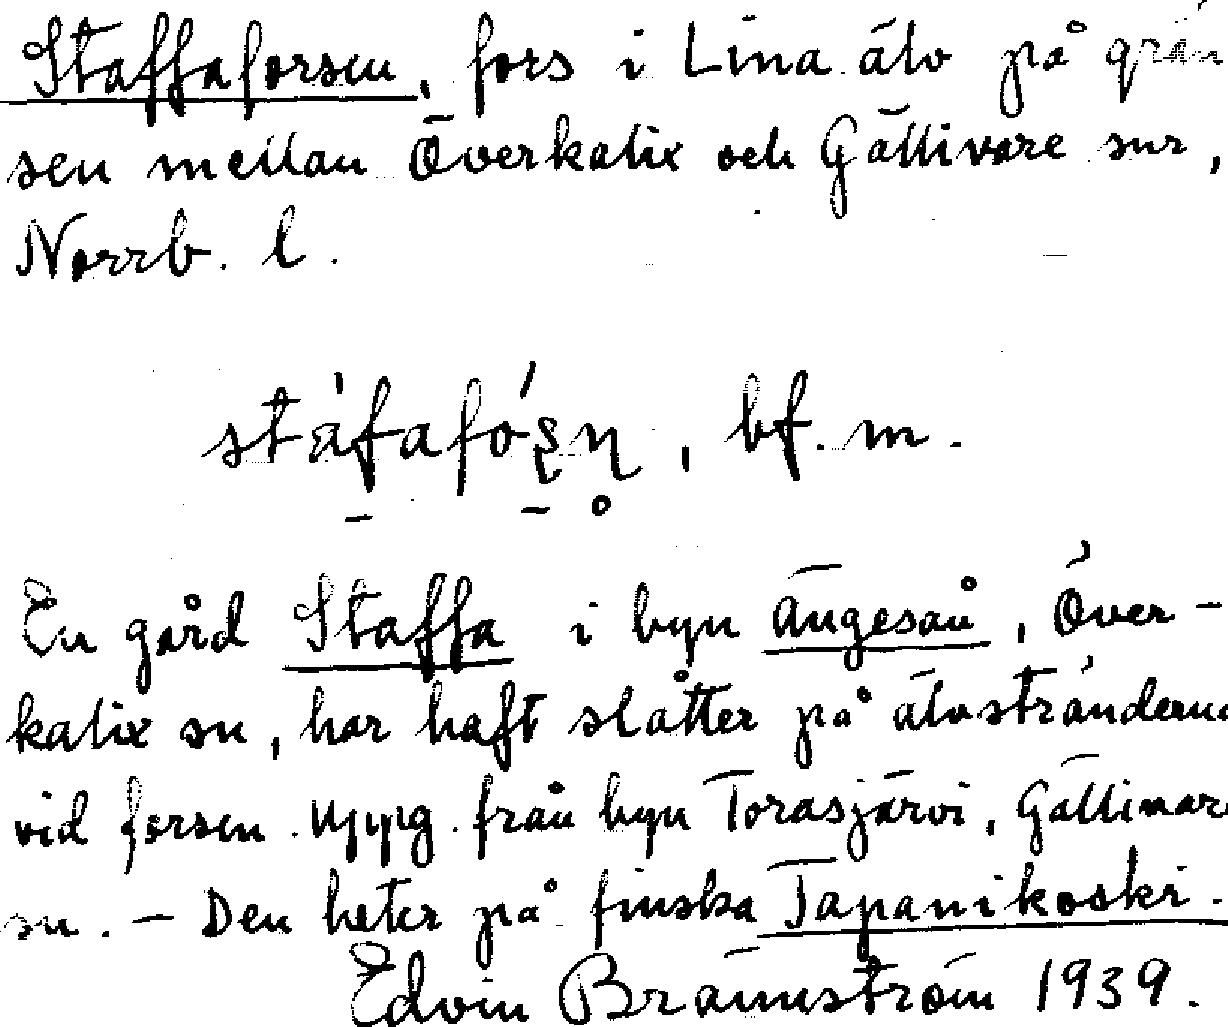 Staffaforsen, fors i Lina älv på grän
sen mellan Överkalix och Gällivare snr,
Norrb. l.
stáfafóʂn̥, bf. m.
En gård Staffa i byn Ängesån, Över-
kalix sn, har haft slåtter på älvstränderna
vid forsen. Uppg. från byn Torasjärvi, Gällivare
sn. – Den heter på finska Tapanikoski.
Edvin Brännström 1939.